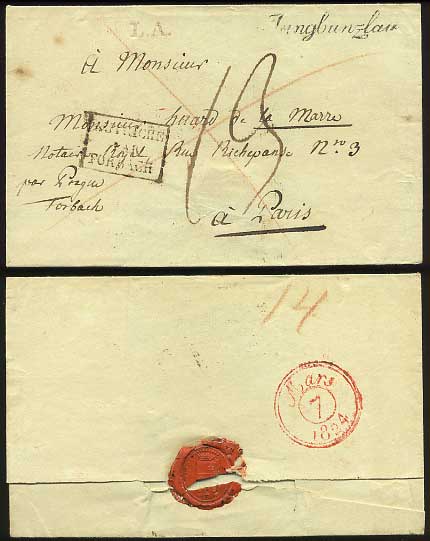 L.A.
Jungbunzlau
à Monsieur
Monsieur huard de la Marre
Notaire Royal Rue Richepanse Nro 3
AUTRICHE
PAR
FORBACH
par Prague
Forbach
à Paris
13
14
Mars
7
1824